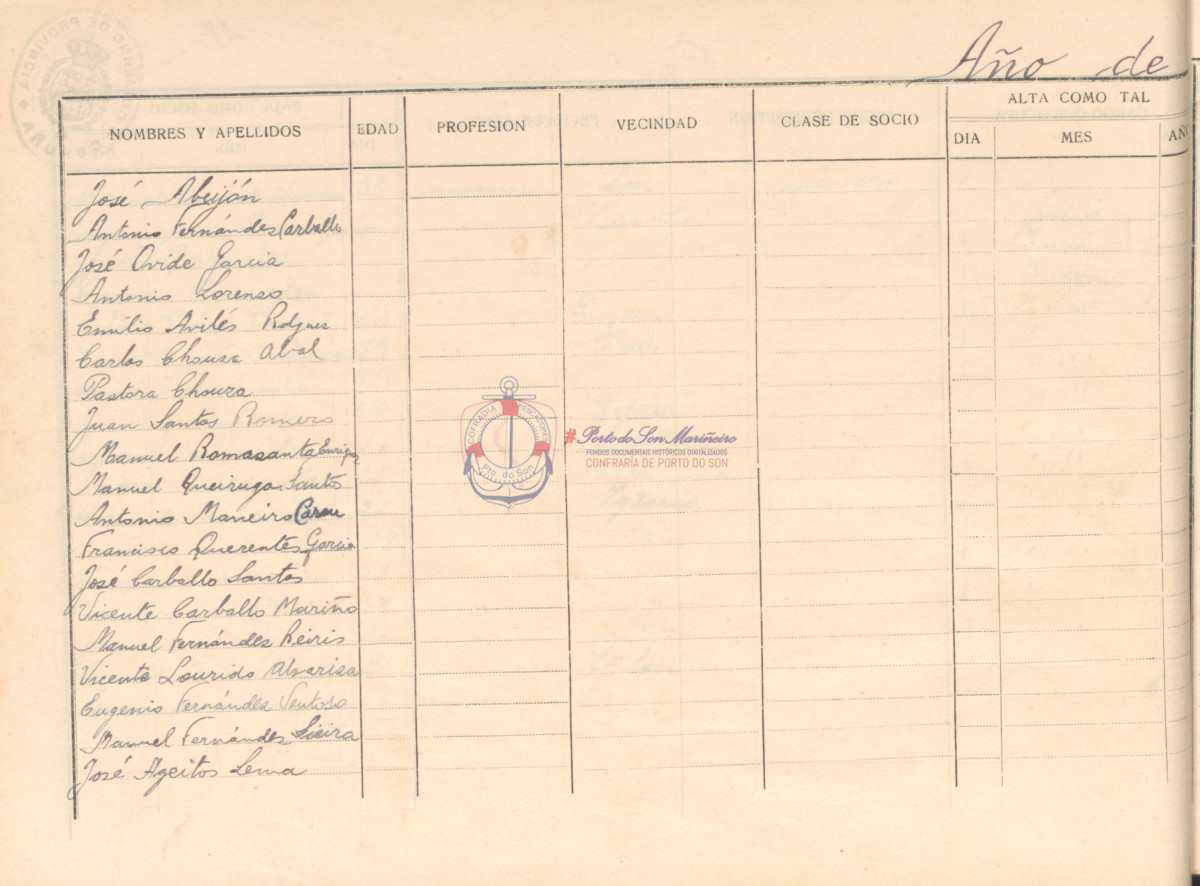 Año de
NOMBRES Y APELLIDOS EDAD PROFESION VECINDAD CLASE DE SOCIO ALTA COMO TAL
DIA MES AÑ
José Abeijón
Antonio Fernándes Carballo
José Ovide Garcia
Antonio Lorenso
Emilio Avilés Rdgues
Carlos Chousa Abal
Pastora Chouza
Juan Santos Romero
Manuel Romasanta
Manuel Queiruga Santos
Antonio Maneiro
Francisco Querentes Garcia
José Carballo Santos
Vicente Carballo Mariño
Manuel Fernándes Reiris
Vicente Lourido
Eugenio Fernández Ventoso
Manuel Fernándes Sieira
José Ageitos Lema
COFRADIA PESCADORES
Pto. do Son
#Porto do Son Mariñeiro
FONDOS DOCUMENTAIS HISTÓRICOS DIGITALIZADOS
CONFRARÍA DE PORTO DO SON